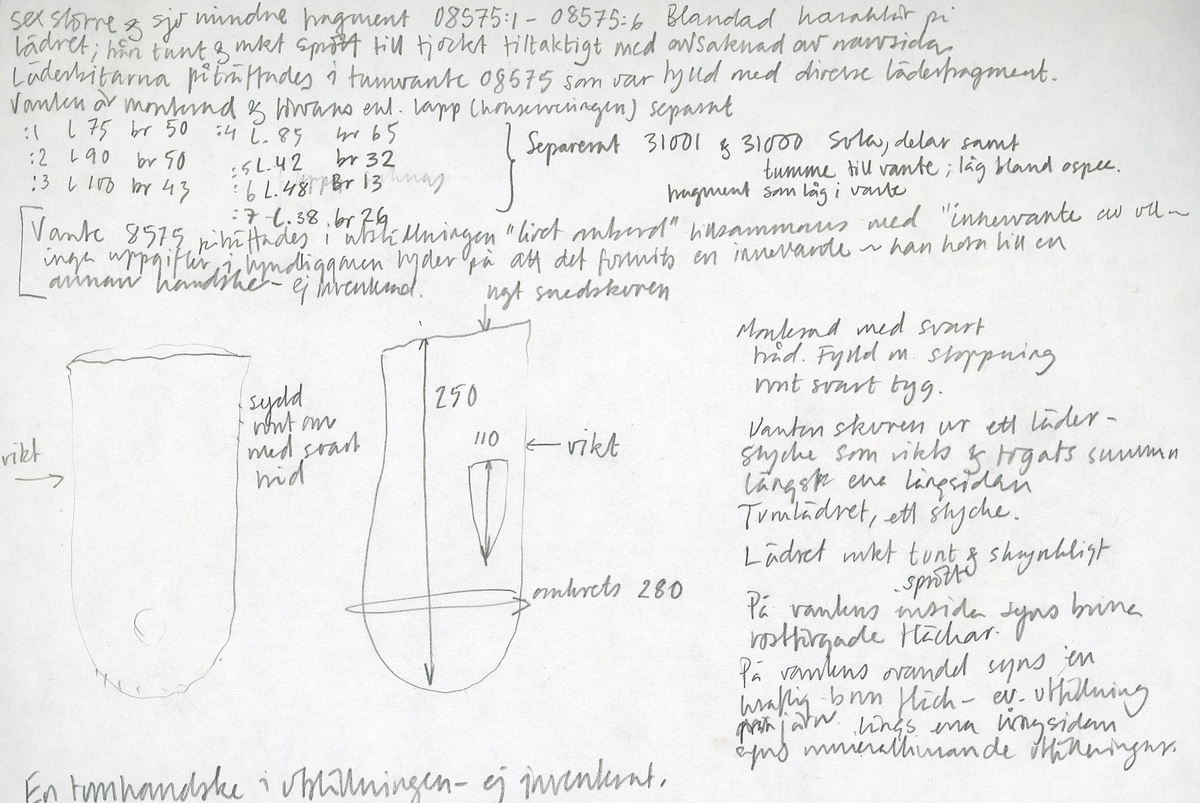 sex större & sju mindre fragment 08575:1 - 08575:6 Blandad karaktär på
lädret; från tunt & mkt sprött till tjockt filtaktigt med avsaknad av narvsida.
Läderbitarna påträffades i tumvante 08575 som var fylld med diverse läderfragment.
Vanten är monterad & förvaras enl. lapp (konserveringen) separat
:1 L 75 br 50 :4 L. 85 br 65
:2 L 90 br 50 :5 L. 42 br 32
:3 L 100 br 43 :6 L. 48 Br 13
:7 L. 38 br 26
Separerat 31001 & 31000 Sula, delar samt
tumme till vante; låg bland ospec.
fragment som låg i vante
Vante 8575 påträffades i utställningen "livet ombord" tillsammans med "innervante av ull -
inga uppgifter i fyndliggaren tyder på att det funnits en innervante - kan höra till en
annan handske - ej inventerad.
ngt snedskuren
vikt
sydd
runt om
med svart
tråd
250
110
vikt
omkrets 280
Monterad med svart
tråd. Fylld m. stoppning
runt svart tyg.
Vanten skuren ur ett läder-
stycke som vikts & fogats samman
längsk ena långsidan
Tumlädret, ett stycke.
Lädret mkt tunt & skrynkligt
sprött
På vantens insida syns bruna
rostfärgade fläckar.
På vantens ovandel syns en
kraftig brun fläck - ev. utfällning
från järn. Längs ena långsidan
syns mineralliknande utfällningar.
En tumhandske i utställningen - ej inventerat.